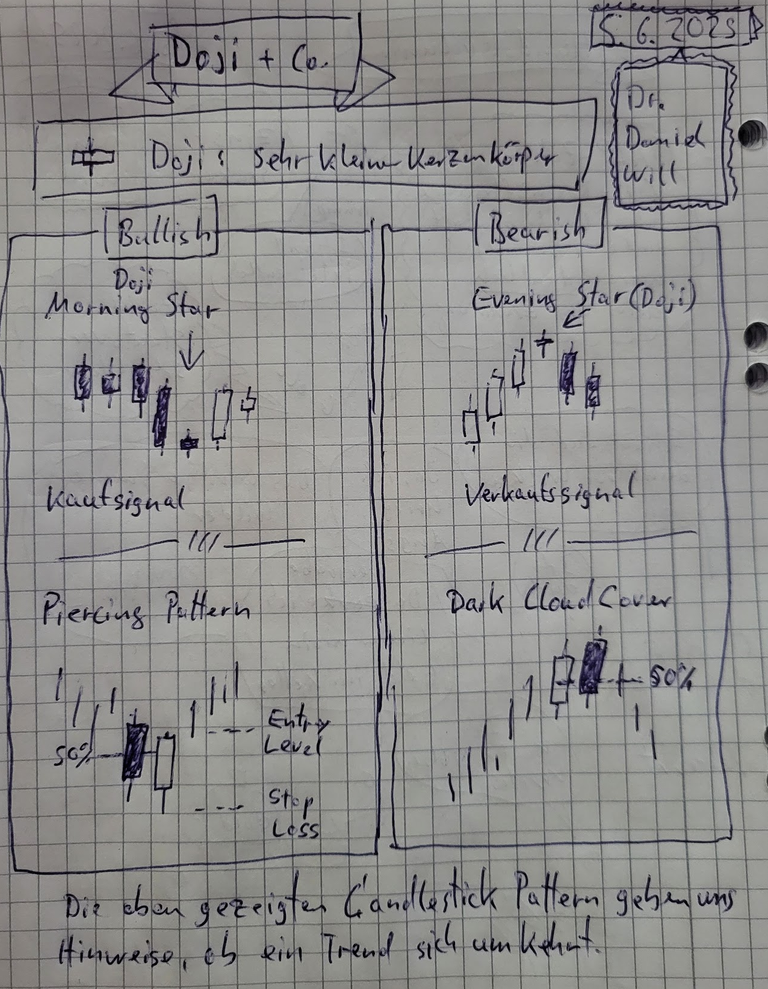 Doji + Co.
5.6.2025
Dr.
Daniel
Will
Doji: sehr kleiner Kerzenkörper
Bullish
Doji
Morning Star
Kaufsignal
Piercing Pattern
50%
Entry
Level
Stop
Loss
Bearish
Evening Star (Doji)
Verkaufssignal
Dark Cloud Cover
50%
Die oben gezeigten Candlestick Pattern geben uns
Hinweise, ob ein Trend sich umkehrt.